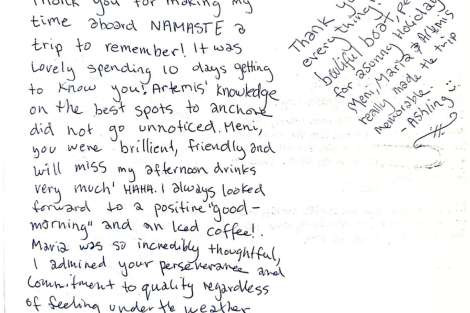 Thank you for making my
time aboard NAMASTE a
trip to remember! It was
lovely spending 10 days getting
to know you! Artemis' knowledge
on the best spots to anchore
did not go unnoticed. Meni,
you were brillient, friendly and
will miss my afternoon drinks
very much' HAHA. I always looked
forward to a positive "good-
morning" and an Iced coffee!.
Maria was so incredibly thoughtful,
I admired your perseverance and
commitment to quality regardless
of feeling under the weather
Thank you
everything!
boat,
for a sunny Holiday
Meni, Maria & Artemis
really made the trip
memorable
- Ashling :)